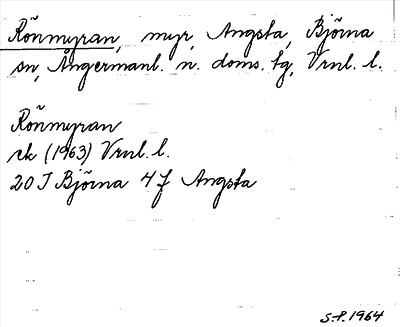 Rõnmyran, myr, Angsta, Bjõrna
sn, Ångermanl. n. doms. tg, Vrnl. l.
Rõnmyran
ek (1963) Vrnl. l.
20 J Bjõrna 4 f Angsta
S-P. 1964